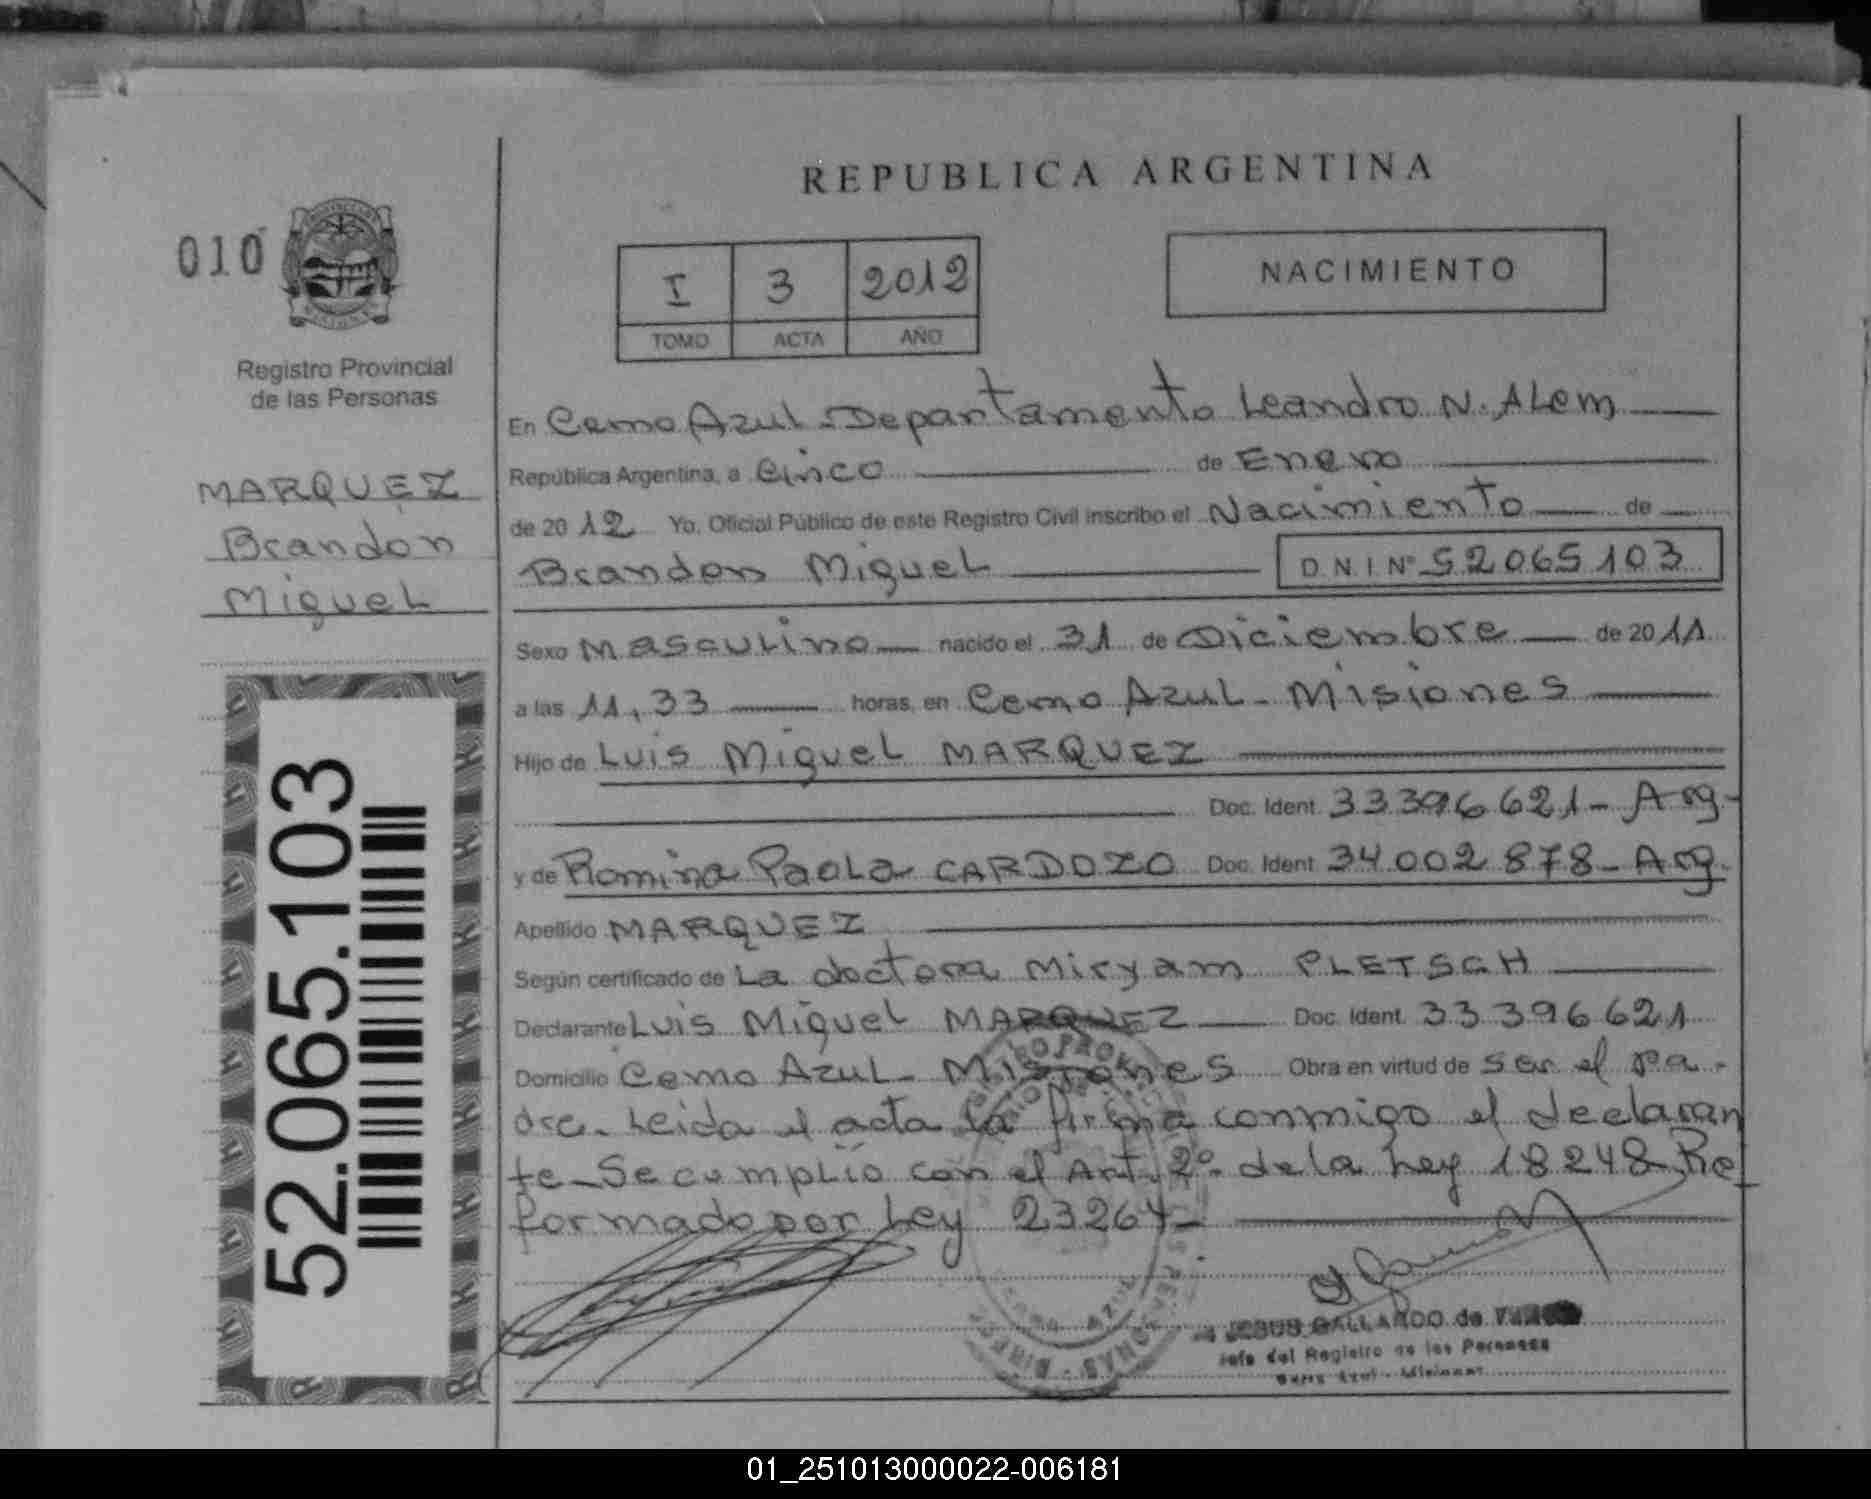 REPUBLICA ARGENTINA
010
I 3 2012
TOMO ACTA AÑO
NACIMIENTO
Registro Provincial
de las Personas
MARQUEZ
Brandon
Miguel
52.065.103
En Cerro Azul - Departamento Leandro N. ALem
República Argentina, a Cinco de Enero
de 2012 Yo, Oficial Público de este Registro Civil inscribo el Nacimiento de
Brandon Miguel D.N.I. Nº 52065103
Sexo Masculino nacido el 31 de Diciembre de 2011
a las 11,33 horas, en Cerro Azul - Misiones
Hijo de Luis Miguel MARQUEZ
Doc. Ident. 33396621 - Arg -
y de Romina Paola CARDOZO Doc. Ident. 34.002.878 - Arg.
Apellido MARQUEZ
Según certificado de La doctora Miryam PLETSCH
Declarante Luis Miguel MARQUEZ Doc. Ident. 33396621
Domicilio Cerro Azul - Misiones Obra en virtud de ser el pa-
dre. Leida el acta la firma conmigo el declaran
te - Se cumplio con el Art. 2º de la Ley 18248 Re
formado por Ley 23264 -
JESUS GALLARDO de
Jefe del Registro de las Personas
Cerro Azul - Misiones
01_251013000022-006181